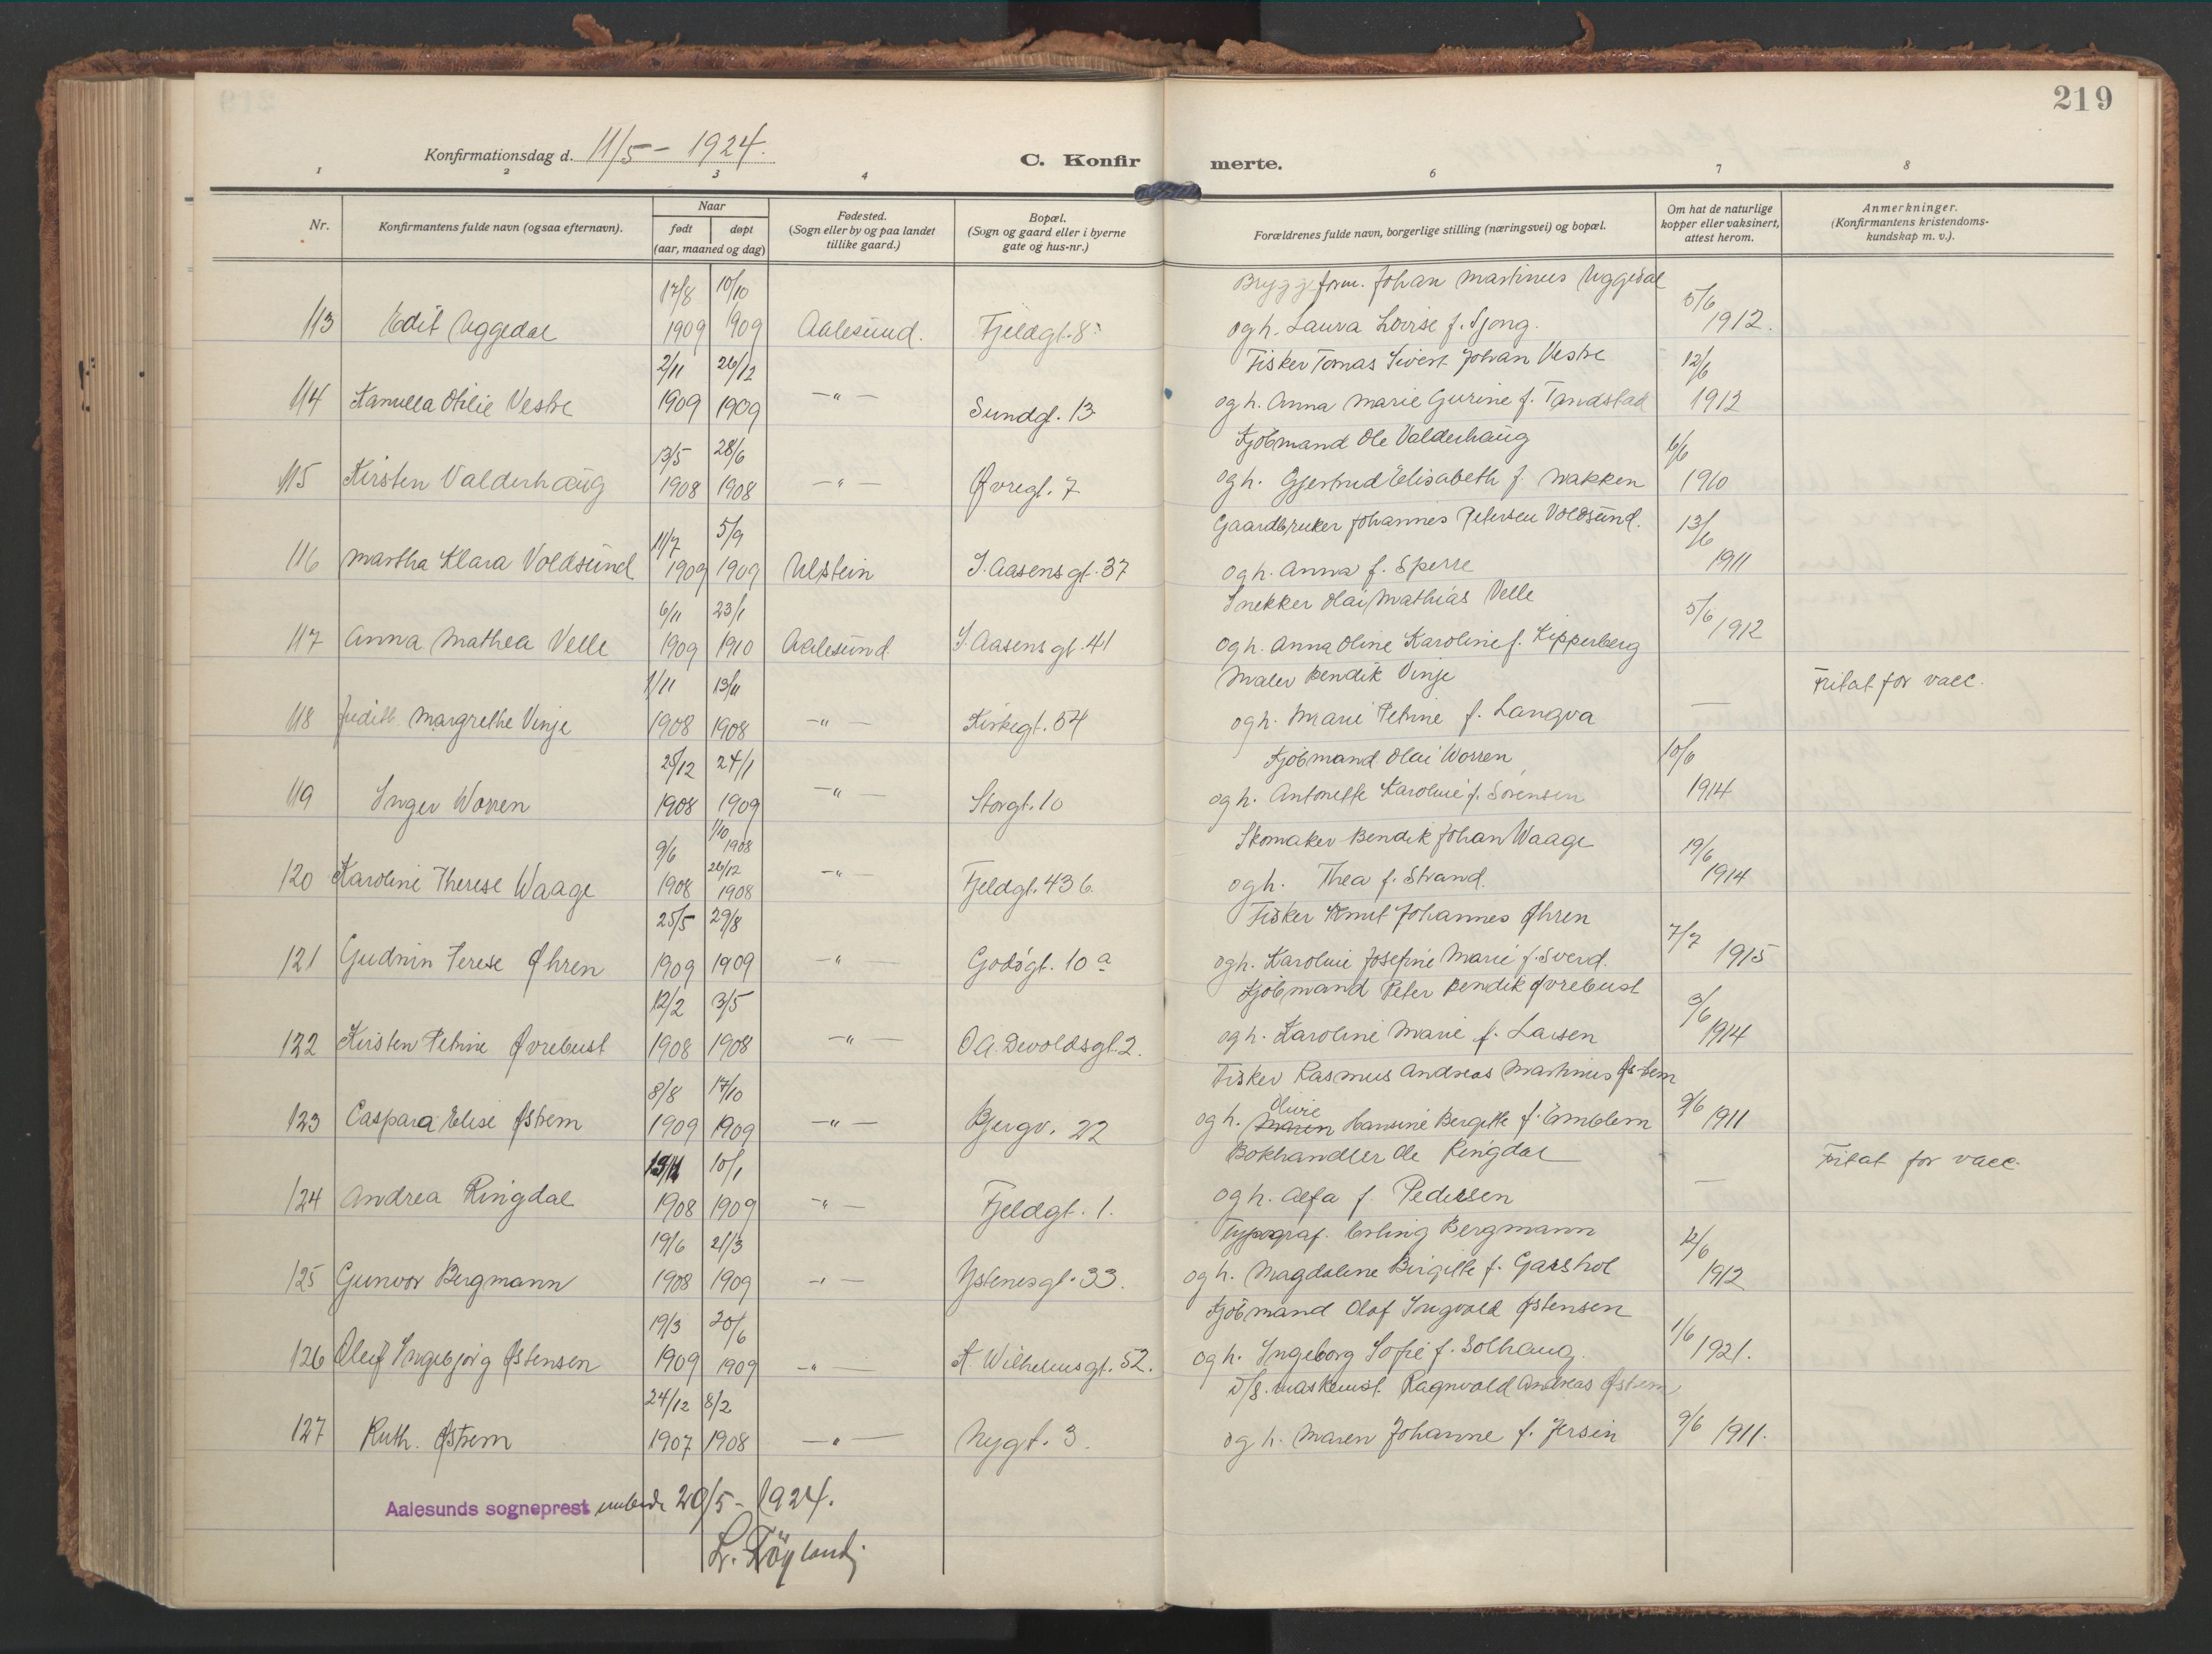 219
Konfirmationsdag d. 11/5 - 1924.
C. Konfirmerte.
1 2 3 4 6 7 8
Nr.
Konfirmantens fulde navn (ogsaa efternavn).
Naar
født døpt
(aar, maaned og dag)
Fødested.
(Sogn eller by og paa landet
tillike gaard.)
Bopæl.
(Sogn og gaard eller i byerne
gate og hus-nr.)
Forældrenes fulde navn, borgerlige stilling (næringsvei) og bopæl.
Om hat de naturlige
kopper eller vaksinert,
attest herom.
Anmerkninger.
(Konfirmantens kristendoms-
kundskap m. v.).
17/8 10/10 Bryggeform. Johan Martinus Uggedal 5/6
113 Edit Uggedal 1909 1909 Aalesund. Fjeldgt. 8 og h. Laura Lovise f. Sjong. 1912.
2/11 26/12 Fisker Tomas Sivert Johan Vestre 12/6
114 Kamilla Otilie Vestre 1909 1909 -"- Sundgt. 13 og h. Anna Marie Gurine f. Tandstad 1913
13/5 28/6 Kjøbmand Ole Valderhaug 6/6
115 Kirsten Valderhaug 1908 1908 -"- Øvregt. 7 og h. Gjertrud Elisabeth f. Nakken 1910
11/7 5/9 Gaardbruker Johannes Petersen Voldsund. 13/6
116 Martha Klara Voldsund 1909 1909 Ulstein I. Aasens gt. 37 og h. Anna f. Sperre 1911
6/11 23/1 Snekker Olai Mathias Velle 5/6
117 Anna Mathea Velle 1909 1910 Aalesund I. Aasens gt. 41 og h. Anna Oline Karoline f. Kipperberg 1912
1/11 13/11 Maler Bendik Vinje Fritat for vacc.
118 Judith Margrethe Vinje 1908 1908 -"- Kirkegt. 54 og h. Marie Petrine f. Langva —
25/12 24/1 Kjøbmand Olai Worren 10/6
119 Inger Worren 1908 1909 -"- Storgt. 10 og h. Antonette Karoline f. Sørensen 1914
9/6 1/10 1908 Skomaker Bendik Johan Waage 19/6
120 Karoline Therese Waage 1908 26/12 1908 -"- Fjeldgt. 43 b. og h. Thea f. Strand. 1914
25/5 29/8 Fisker Knut Johannes Øhren 7/7
121 Gudrun Terese Øhren 1909 1909 -"- Godøgt. 10 a og h. Karoline Josefine Marie f. Sverd. 1915
12/2 3/5 Kjøbmand Peter Bendik Øvrebust 3/6
122 Kirsten Petrine Øvrebust 1908 1908 -"- O.A. Devoldsgt. 2. og h. Karoline Marie f. Larsen 1914
8/8 17/10 Fisker Rasmus Andreas Martinus Østrem
Olivie
123 Caspara Elise Østrem 1909 1909 -"- Bergv. 22 og h. Maren Hansine Bergitte f. Emblem 9/6 1911
10/1 Bokhandler Ole Ringdal Fritat for vacc.
124 Andrea Ringdal 1908 1909 -"- Fjeldgt. 1. og h. Alfa f. Pedersen —
19/6 21/3 Typograf. Erling Bergmann 12/6
125 Gunvor Bergmann 1908 1909 -"- Ystenesgt. 33. og h. Magdalene Birgitte f. Garshol 1912
19/3 20/6 Kjøbmand Olaf Ingvald Østensen 1/6
126 Oleif Ingebjørg Østensen 1909 1909 -"- K. Wilhelmsgt. 52. og h. Ingeborg Sofie f. Solhaug. 1921.
24/12 8/2 D/s. maskinist. Ragnvald Andreas Østrem
127 Ruth. Østrem 1907 1908 -"- Nygt. 3. og h. Maren Johanne f. Jersin 9/6 1911.
Aalesunds sogneprest embede 20/5 - 1924.